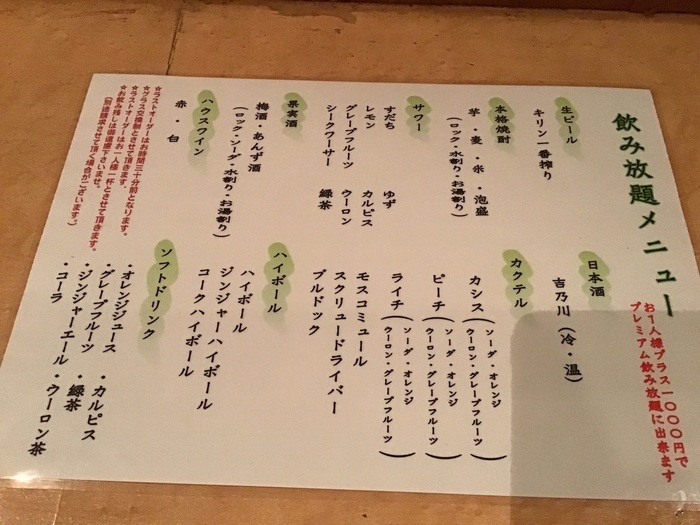 飲み放題メニュー
お1人様プラス一〇〇〇円で
プレミアム飲み放題に出来ます
生ビール
キリン一番搾り
本格焼酎
芋・麦・米・泡盛
(ロック・水割り・お湯割り)
サワー
すだち ゆず
レモン カルピス
グレープフルーツ ウーロン
シークワーサー 緑茶
果実酒
梅酒・あんず酒
(ロック・ソーダ・水割り・お湯割り)
ハウスワイン
赤・白
日本酒
吉乃川(冷・温)
カクテル
カシス(ソーダ・オレンジ
ウーロン・グレープフルーツ)
ピーチ(ソーダ・オレンジ
ウーロン・グレープフルーツ)
ライチ(ソーダ・オレンジ
ウーロン・グレープフルーツ)
モスコミュール
スクリュードライバー
ブルドック
ハイボール
ハイボール
ジンジャーハイボール
コークハイボール
ソフトドリンク
・オレンジジュース ・カルピス
・グレープフルーツ ・緑茶
・ジンジャーエール・ウーロン茶
・コーラ
☆ラストオーダーはお時間三十分前となります。
☆グラス交換制とさせて頂きます。
☆ラストオーダーはお一人様一杯とさせて頂きます。
☆お飲み残しは御遠慮下さいませ。
(別途請求させて頂く場合がございます。)